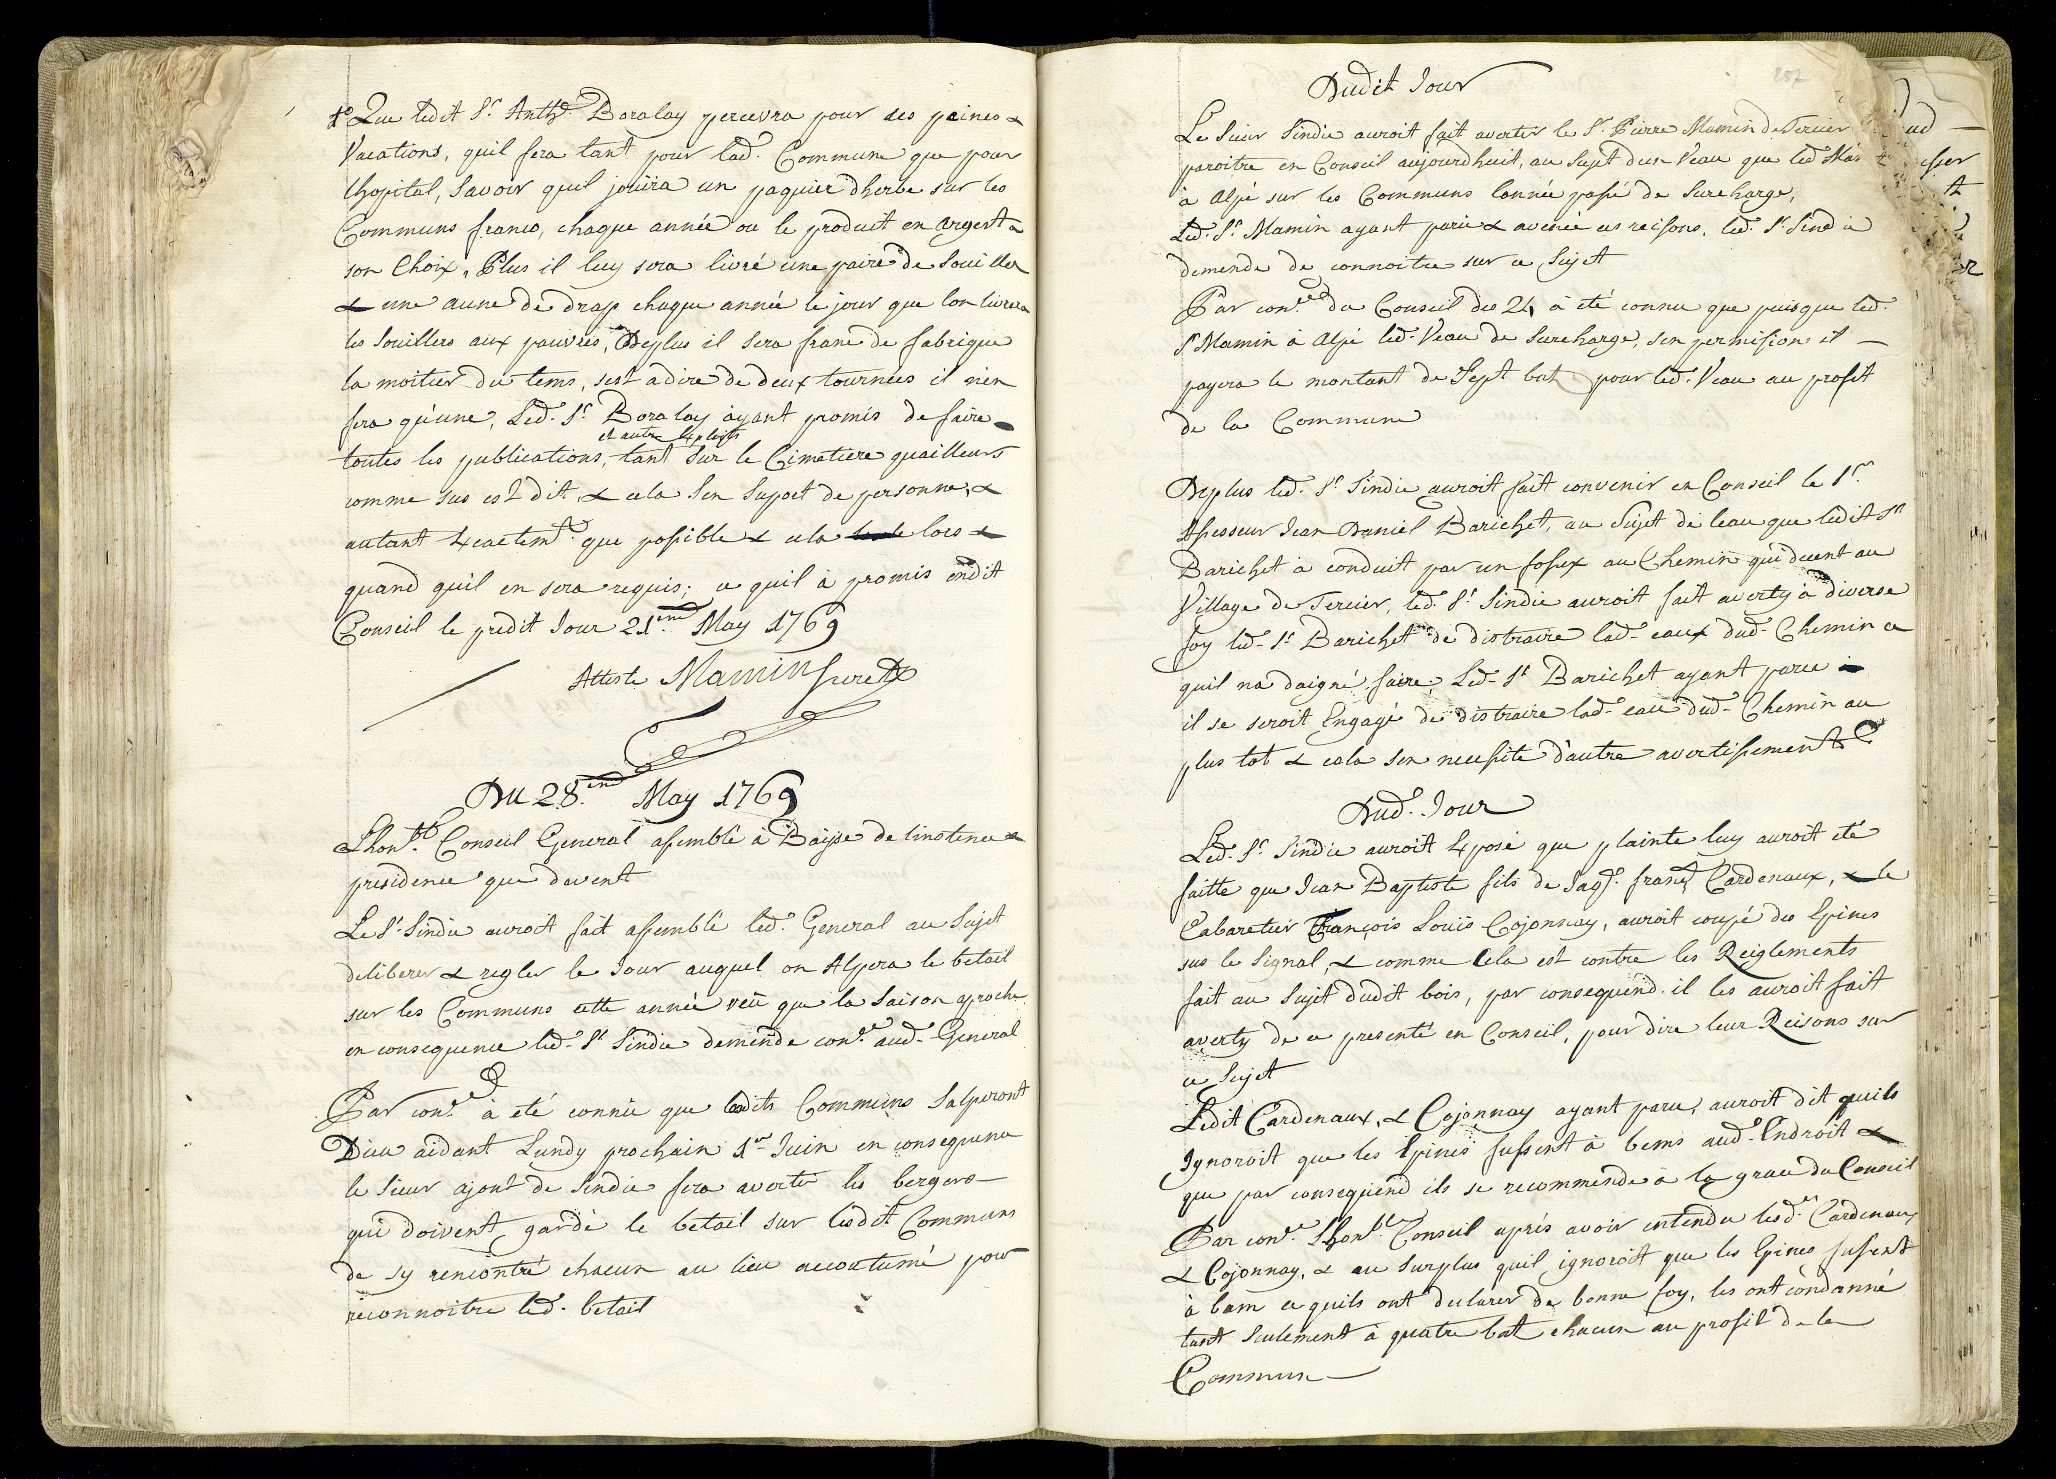 1º Que ledit Sr. Anthe. Boralay percevra pour ses paines &
Vacations, quil fera tant pour lade. Commune que pour
lhopital, Savoir quil joüira un paquier dherbe sur les
Communs franco, chaque année ou le produit en argent a
son Choix, Plus il luy sera livré une paire de Souiller
& une aune de drap chaque année le jour que lon livrera
les Souillers aux pauvres, Deplus il sera franc de fabrique
la moitier du tems, sest adire de deux tournées il nen
fera qu'une, Led. Sr. Boralay ayant promis de faire
et autre Exploits
toutes les publications, tant sur le Cimetiere quailleurs
comme sus est dit, & cela sen suport de personne, &
autant Exactemt. que possible & cela lors &
quand quil en sera requis; ce quil à promis endit
Conseil le predit Jour 21eme May 1769
Atteste Mamin Secret
Du 28.eme May 1769
Lhonble. Conseil General assemblé à Bäysse de linstence &
presidence que devent
Le Sr. Sindic auroit fait assemblé led. General au Sujet
deliberer & regler le Jour auquel on Alpera le betail
sur les Communs cette année veü que la Saison aproche
en consequence led. Sr. Sindic demende conce. aud. General
Par conce. à eté connüe que lesdits Communs Salperont
Dieu aidant Lundy prochain 1er Juin en consequence
le Sieur ajoint de Sindic fera avertir les bergers
qui doivent gardé le betail sur lesdit Communs
de sy rencontré chacun au lieu accoutumé pour
reconnoitre led. betail
207
Dudit Jour
Le Sieur Sindic auroit fait averter le Sr. Pierre Mamin de Tercier
paroitre en Conseil aujourdhuit, au Sujet dun Veau que led. Mam
à Alpé sur les Communs lannée passé de Surcharge,
Led. Sr. Mamin ayant paru & avencé ces reisons, led. Sr. Sindic
demende de connoitre sur ce Sujet
Par conce. du Conseil des 24 à été connu que puisque led.
Sr. Mamin à Alpé led. Veau de Surcharge, sen permission il
payera le montant de Sept bat pour led. Veau au profit
de la Commune
Deplus led. Sr. Sindic auroit fait convenir en Conseil le Sr.
Assesseur Jean Daniel Barichet, au Sujet de leau que ledit Sr
Barichet à conduit par un fossex au Chemin qui devent au
Village de Tercier, led. Sr. Sindic auroit fait averty à diverse
foy led. Sr. Barichet de distraire lad. eaux dud. Chemin ce
quil na daigné faire; Led. Sr. Barichet ayant parue
il se seroit Engagé de distraire lad. eau dud. Chemin au
plus tot & cela sen necessité d'autre avertissement
Dud. Jour
Led. Sr. Sindic auroit Exposé que plainte luy auroit eté
faitte que Jean Baptiste fils de Jaqs. francs Cardenaux, & le
Cabaretier François Loüis Cojonnay, auroit coupé des Epines
sus le Signal, & comme Cela est contre les Reiglements
fait au Sujet dudit bois, par consequend il les auroit fait
averty de ce presenté en Conseil, pour dire leur Reisons sur
ce Sujet
Ledit Cardenaux, & Cojonnay ayant paru, auroit dit quils
Ignoroit que les Epines fussent à bems aud. Endroit &
que par consequend ils se recommende à la grace du Conseil
Par conce. Lhonble. Conseil aprés avoir entendu lesd. Cardenaux
& Cojonnay, & au Surplus quil ignoroit que les Epines fussent
à bam ce quils ont declarer de bonne foy, les ont condanné
tant Seulement à quatre bat chacun au profit de la
Commune